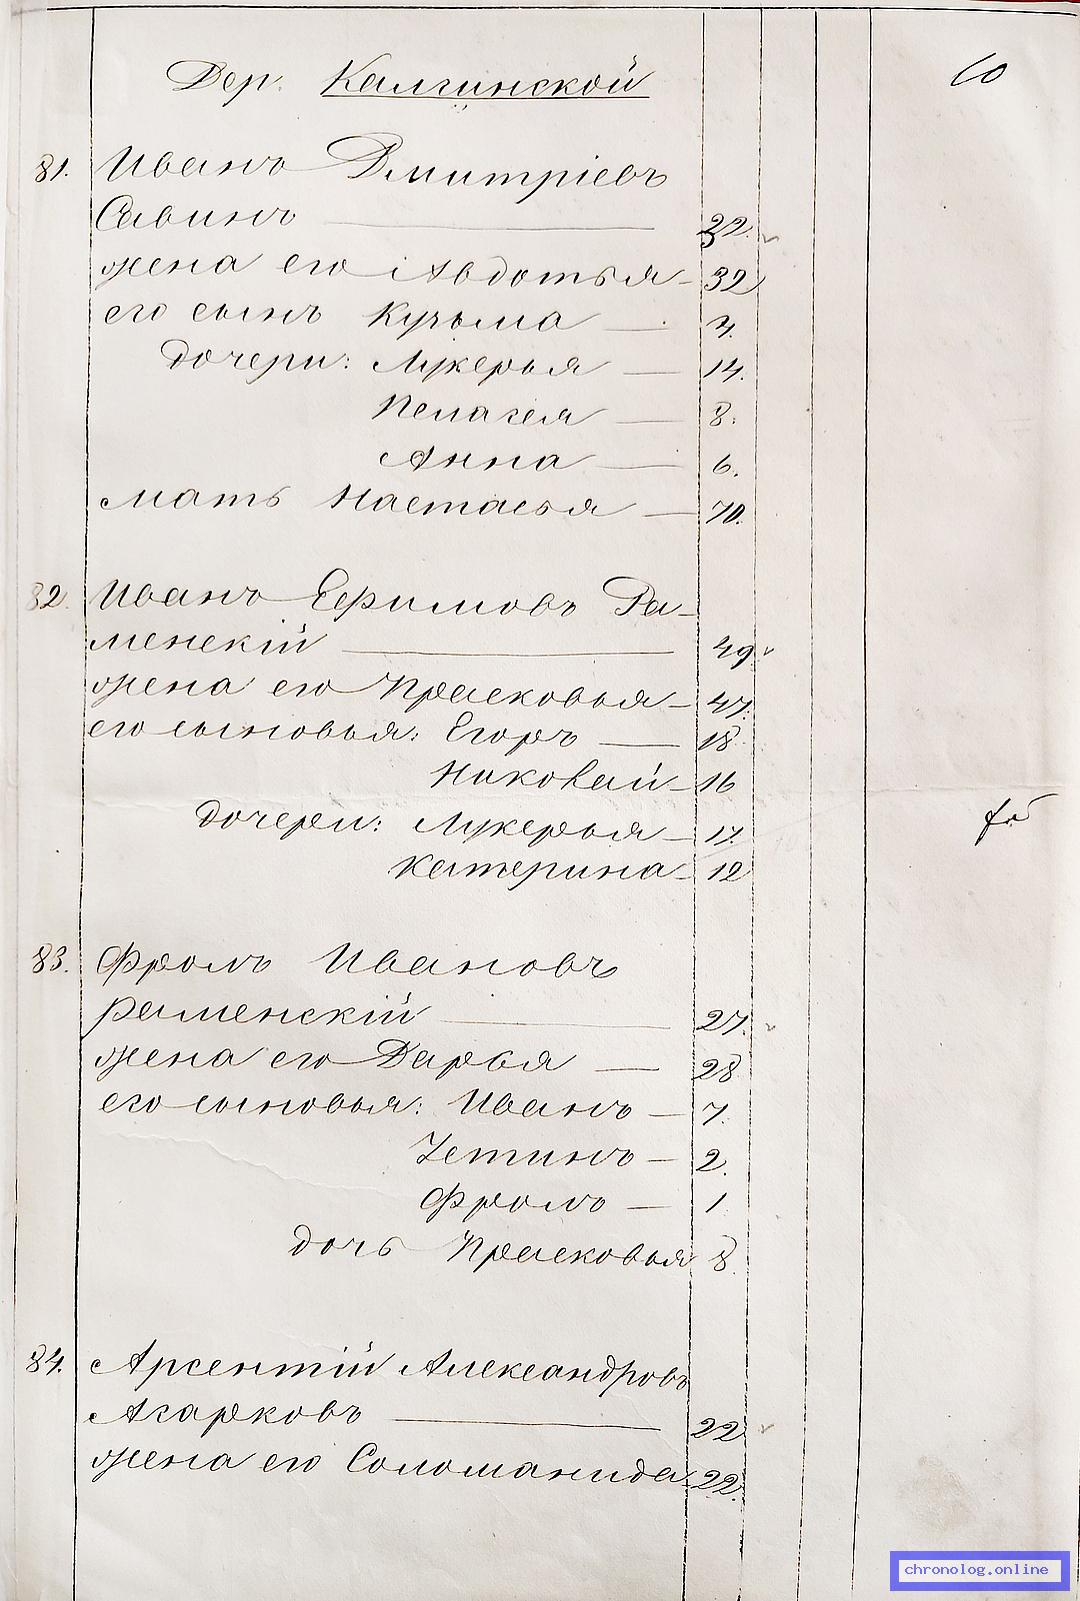 Дер. Калгинской
60
81. Иванъ Дмитріевъ
Савинъ — 32.
жена его Авдотья - 32
его сынъ Кузьма — 4.
дочери: Лукерья — 14.
Пелагея — 8.
Анна — 6.
мать Настасья — 70.
82. Иванъ Ефимовъ Ра-
менскій — 49
жена его Прасковья - 47.
его сыновья: Егоръ — 18
Николай - 16
дочери: Лукерья - 17.
Катерина - 12
83. Фролъ Ивановъ
Раменскій — 27.
жена его Дарья — 28
его сыновья: Иванъ — 7.
Устинъ — 2.
Фролъ — 1
дочь Прасковья 8.
84. Арсентій Александровъ
Агарковъ — 22
жена его Соломанида 22.
chronolog.online